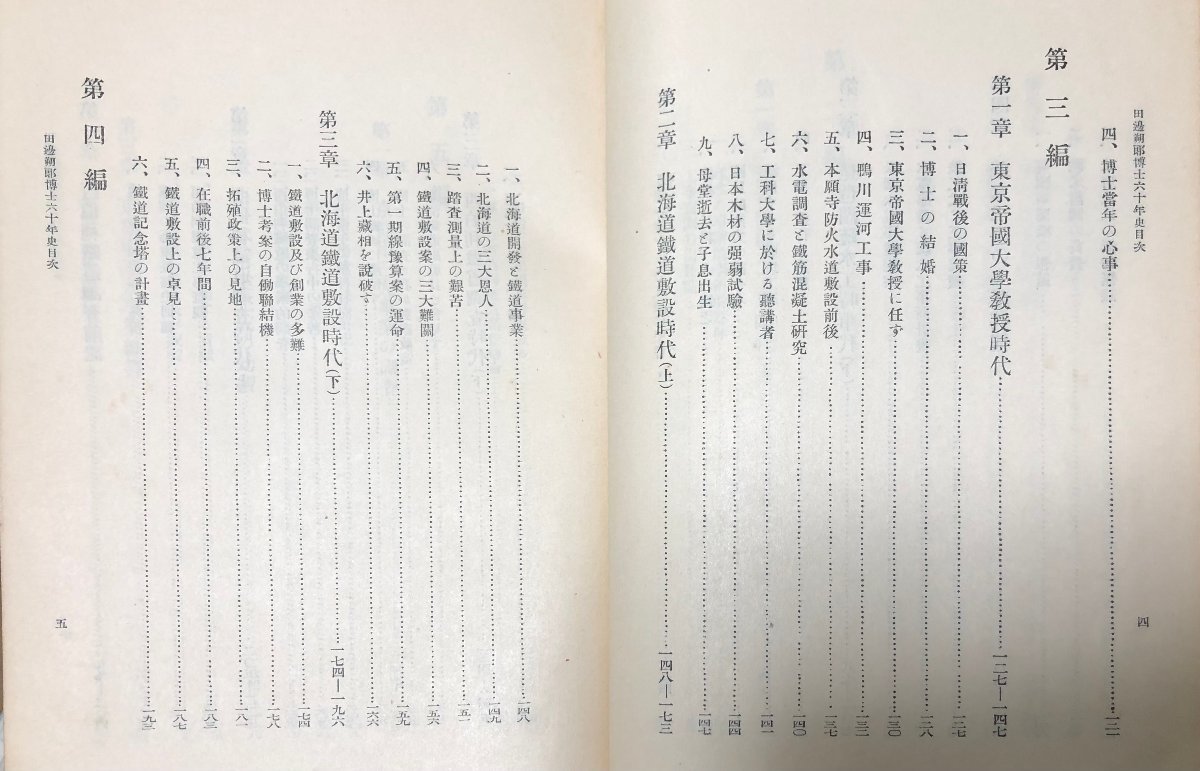 田邊朔郎博士六十年史目次
四、博士當年の心事……一二一
第三編
第一章　東京帝國大學敎授時代……一二七—一四七
一、日淸戰後の國策……一二七
二、博士の結婚……一二八
三、東京帝國大學敎授に任す……一三〇
四、鴨川運河工事……一三二
五、本願寺防火水道敷設前後……一三七
六、水電調査と鐵筋混凝土硏究……一四〇
七、工科大學に於ける聽講者……一四一
八、日本木材の强弱試驗……一四四
九、母堂逝去と子息出生……一四七
第二章　北海道鐵道敷設時代（上）……一四八—一七三
四
一、北海道開發と鐵道事業……一四八
二、北海道の三大恩人……一四九
三、踏査測量上の艱苦……一五一
四、鐵道敷設案の三大難關……一五六
五、第一期線豫算案の運命……一五九
六、井上藏相を說破す……一六六
第三章　北海道鐵道敷設時代（下）……一七四—一九六
一、鐵道敷設及び創業の多難……一七四
二、博士考案の自働聯結機……一七八
三、拓殖政策上の見地……一八一
四、在職前後七年間……一八三
五、鐵道敷設上の卓見……一八七
六、鐵道記念塔の計畫……一九三
第四編
田邊朔郎博士六十年史目次
五